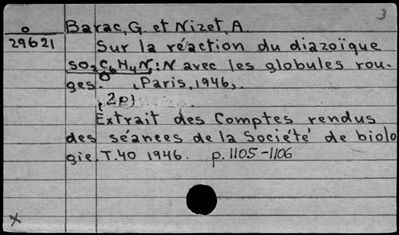 3
o
29621
Barac, G. et Nizet, A.
Sur la réaction du diazoïque
SO₂C₆H₄N:N avec les globules rou-
O
ges. (Paris, 1946).
(2p)
Extrait des Comptes rendus
des séances de la Société de biolo
gie. T.40 1946. p. 1105-1106
X